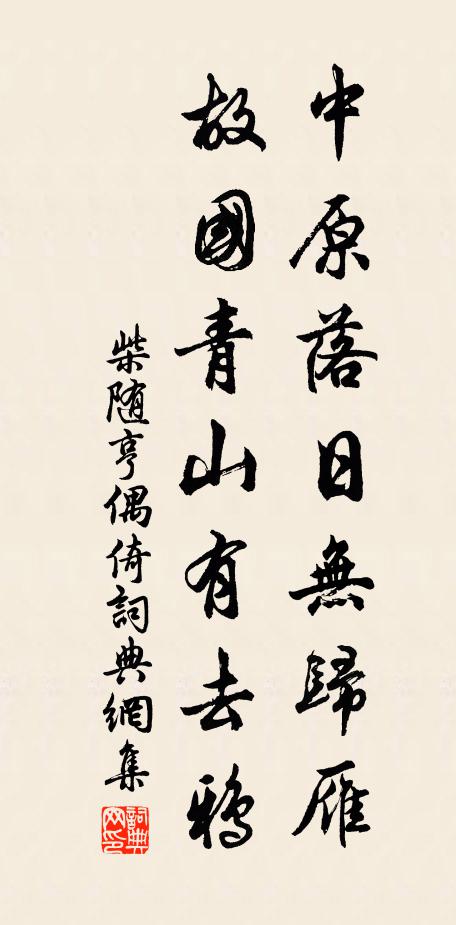 中原落日無歸雁
故國青山有去鴉
柴随亨偶倚詞典網集
詞典网印